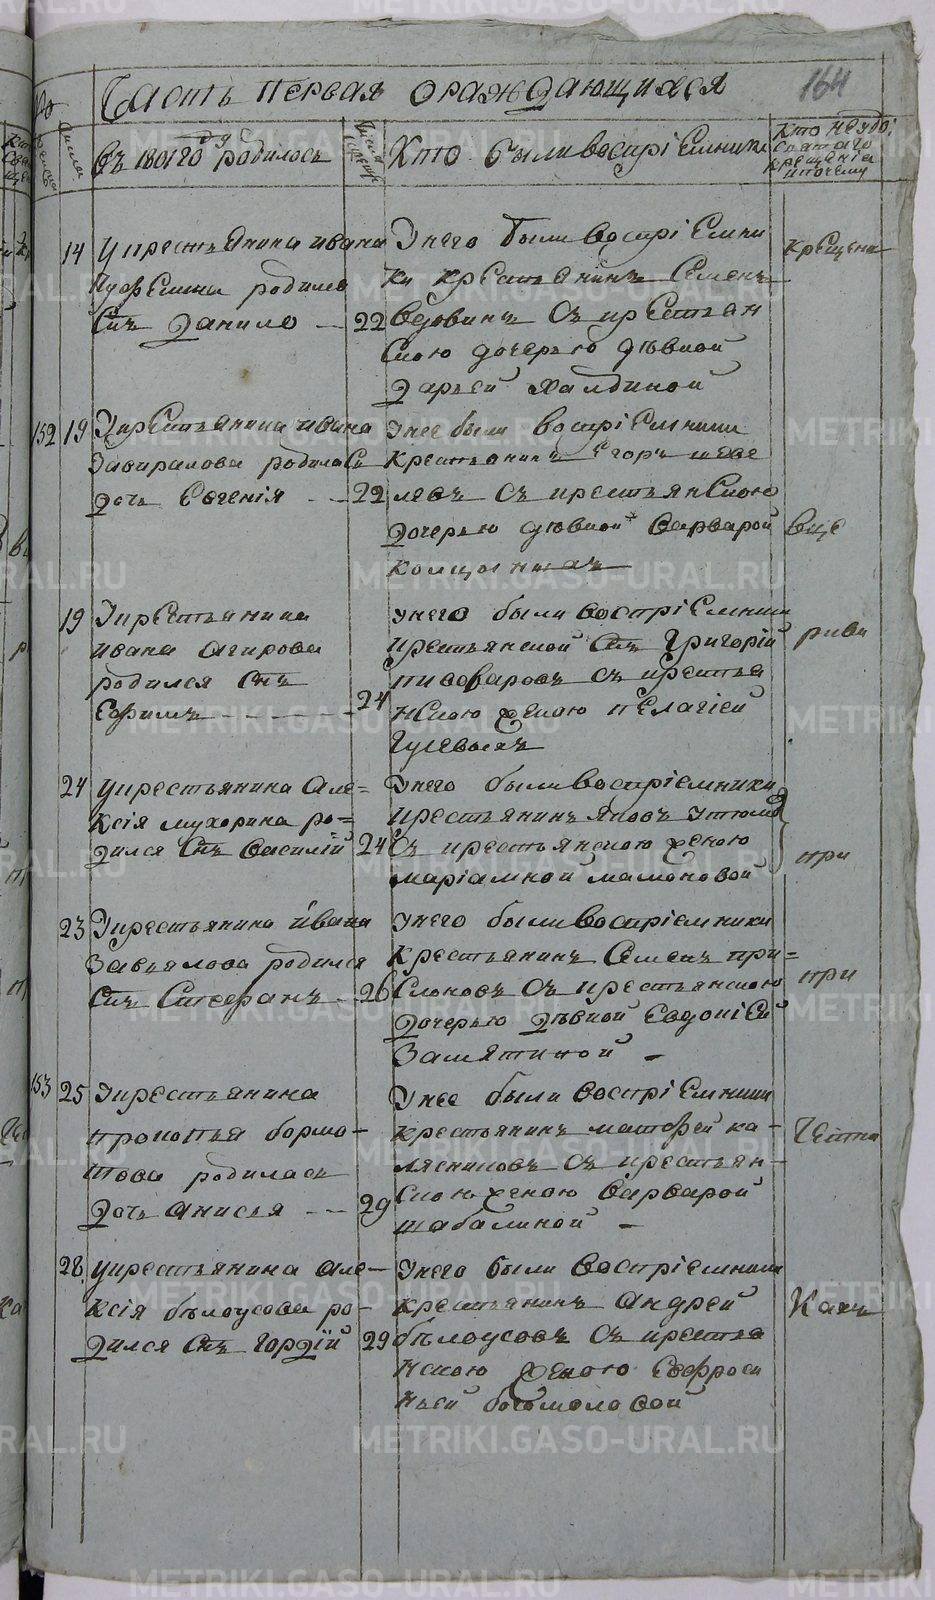 Часть первая ораждающихся
164
Въ 1801 году родилось
Кто были воспріемники
Кто неудо:
святаго
крещенія
ипочему
14 У крестьянина ивана
родился
Снъ Данило 22
Унего были воспріемни
ки крестьянинъ Семенъ
Вдовинъ Съ крестьян
скою дочерью дѣвкой
Дарьей Халдиной
крещени
152 19 У крестьянина ивана
родилась
Дочь Евгенія 22
Унее были воспріемники
крестьянинъ Егоръ
левъ Съ крестьянскою
Дочерью дѣвкой Варварой
вще
19 У крестьянина
ивана
родился Снъ
Ефимъ 24
Унего были воспріемники
крестьянской Снъ Григорій
пивоваровъ Съ крестья
нскою женою пелагіей
Гусевыхъ
24 У крестьянина Але=
ксія мухорина ро=
дился Снъ Василій 24
Унего были воспріемники
крестьянинъ Яковъ
Съ крестьянскою женою
маріамной мамоновой
при
23 У крестьянина ивана
Завьялова родился
Снъ Стефанъ 26
Унего были воспріемники
Крестьянинъ Семенъ при=
Слоновъ Съ крестьянскою
Дочерью Дѣвкой Евдокіей
Замятиной
при
153 25 У крестьянина
прокопья бормо-
това родилась
Дочь анисья 29
Унее были воспріемники
крестьянинъ матфей ка-
лясниковъ Съ крестьян-
скою женою Варварой
шабалиной
28 У крестьянина Але-
ксія бѣлоусова ро-
дился Снъ гордій 29
Унего были воспріемники
крестьянинъ Андрей
бѣлоусовъ Съ крестья
нскою женою Евфроси
ньей богомоловой
METRIKI.GASO-URAL.RU